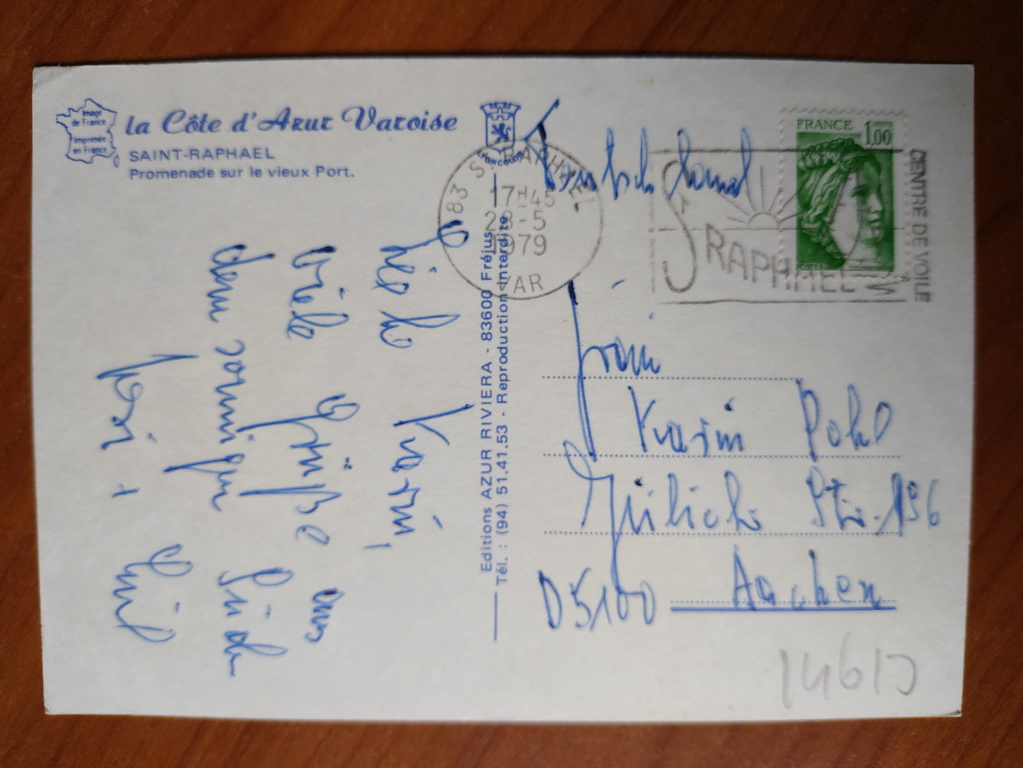 Image
de France
Imprimée
en France
la Côte d'Azur Varoise
SAINT-RAPHAEL
Promenade sur le vieux Port.
Liebe Karin,
viele Grüße aus
dem sonnigen Süden
+ Emil
Editions AZUR RIVIERA - 83600 Fréjus
Tél. : (94) 51.41.53 - Reproduction interdite
83 ST RAPHAEL
17H45
28-5
1979
VAR
FRANCE 1,00
ST RAPHAEL
CENTRE DE VOILE
Deutschland
Frau
Karin Pohl
Jülicher Str. 196
D 5100 Aachen